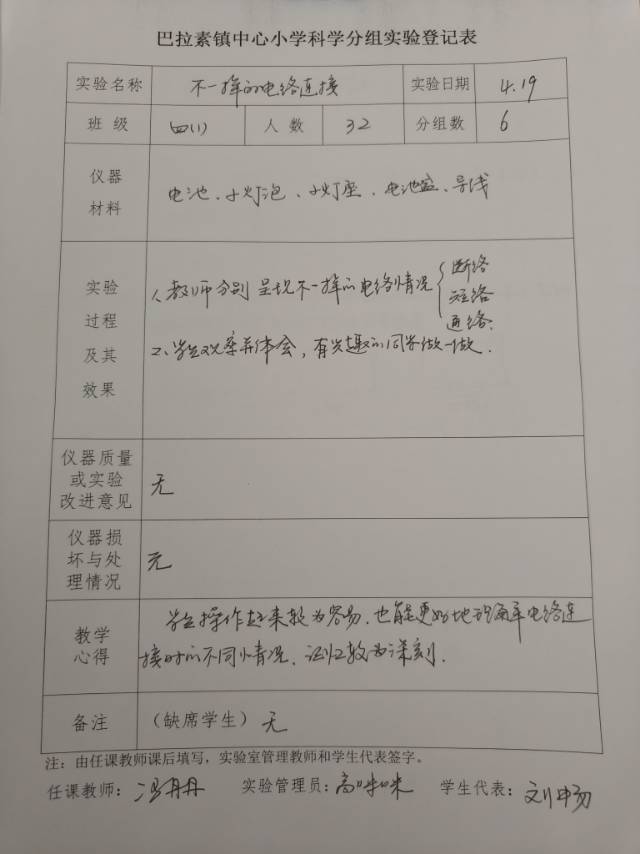 巴拉素镇中心小学科学分组实验登记表
实验名称 不一样的电路连接 实验日期 4.19
班级 四(1) 人数 32 分组数 6
仪器
材料
电池、小灯泡、小灯座、电池盒、导线
实验
过程
及其
效果
1、教师分别呈现不一样的电路情况 { 断路
短路
通路.
2、学生观察并体会,有兴趣的同学做一做.
仪器质量
或实验
改进意见
无
仪器损
坏与处
理情况
无
教学
心得
学生操作起来较为容易,也能更好地理解电路连
接时的不同情况,记忆较为深刻.
备注 (缺席学生) 无
注:由任课教师课后填写,实验室管理教师和学生代表签字。
任课教师:冯丹丹 实验管理员:高 学生代表:刘